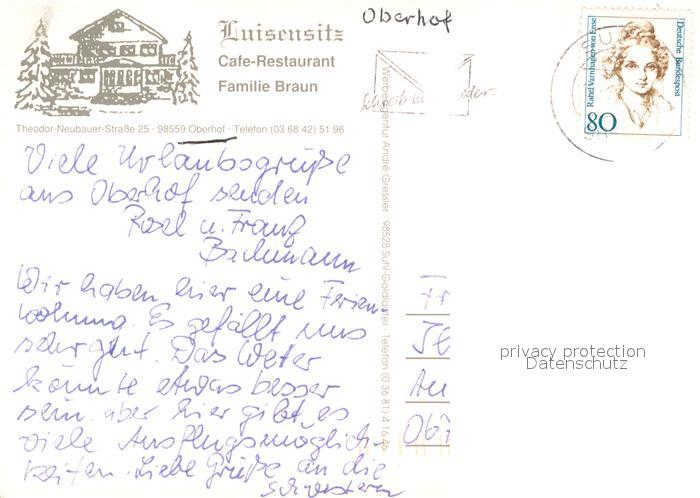 Luisensitz
Cafe-Restaurant
Familie Braun
Theodor-Neubauer-Straße 25 · 98559 Oberhof · Telefon (03 68 42) 51 96
Oberhof
Schreib mal wieder
Deutsche Bundespost
Rahel Varnhagen von Ense
80
Viele Urlaubsgrüße
aus Oberhof senden
Rosel u. Franz
Bachmann
Wir haben hier eine Ferien-
wohnung. Es gefällt uns
sehr gut. Das Weter
könnte etwas besser
sein, aber hier gibt es
viele Ausflugsmöglich-
keiten. Liebe Grüße an die
Schwestern
Werbeagentur André Gressler · 98528 Suhl-Goldlauter · Telefon (0 36 81) 4 16 46
Fr
Au
067
privacy protection
Datenschutz